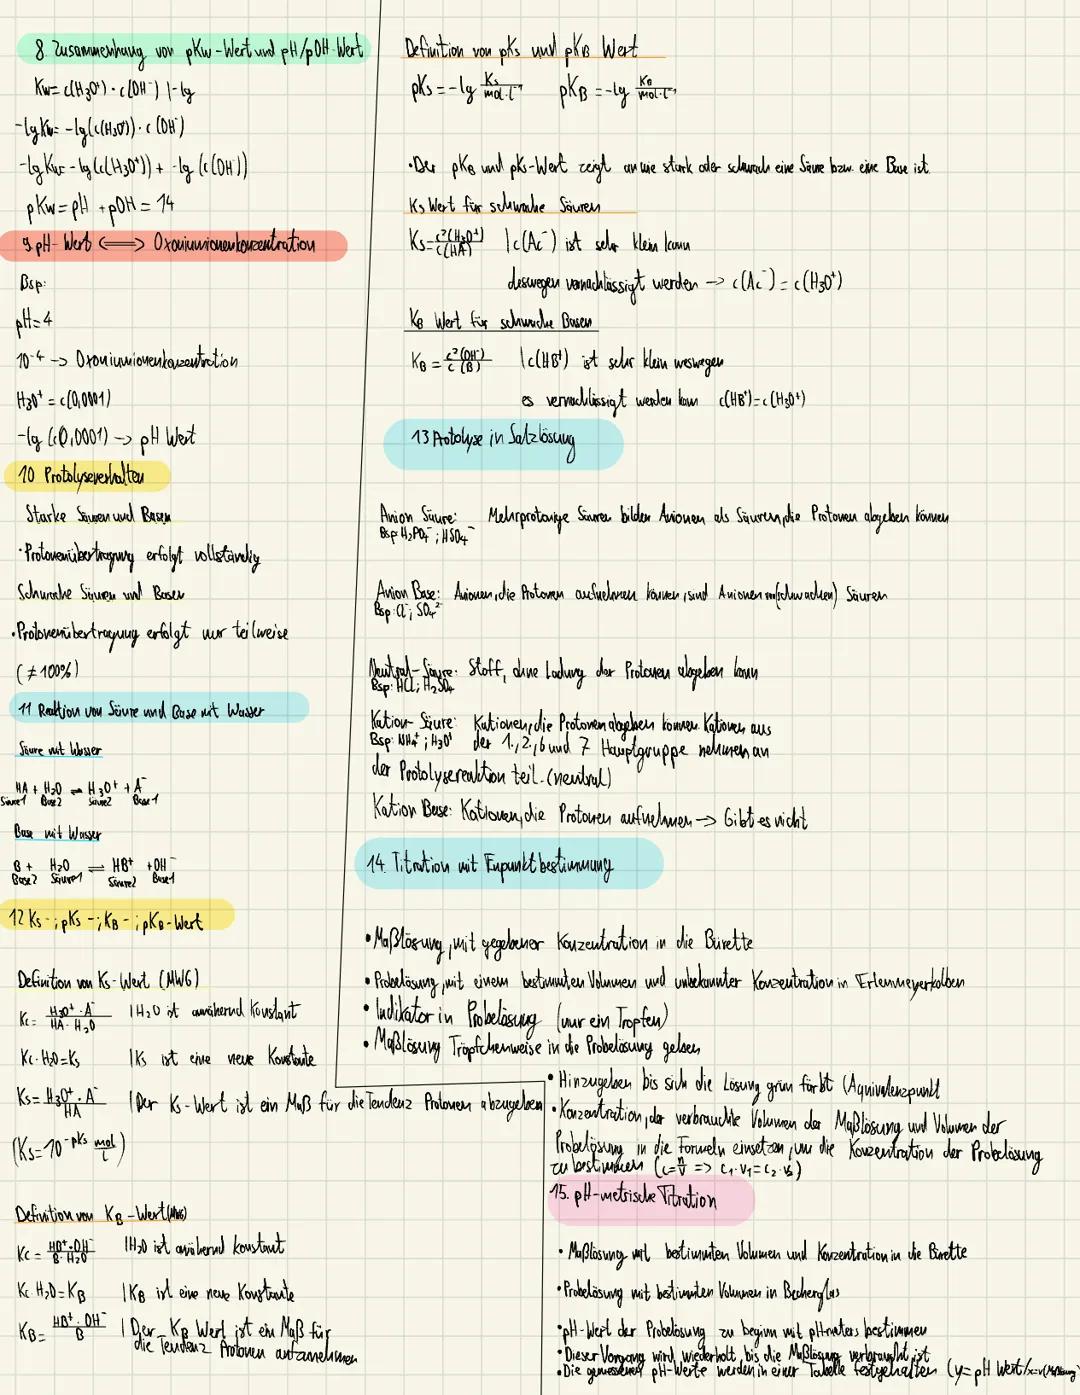 8. Zusammenhang von pKw-Wert und pH/pOH-Wert
Kw= c(H3O+)·c(OH⁻) |-lg
-lg Kw= -lg(c(H3O+))·c(OH⁻)
-lg Kw= -lg(c(H3O+)) + -lg(c(OH⁻))
pKw=pH +pOH= 14
9 pH-Wert <=> Oxoniumionenkonzentration
Bsp:
pH=4
10^-4 -> Oxoniumionenkonzentration
H3O+ = c(0,0001)
-lg (c0,0001) -> pH Wert
10 Protolyseverhalten
Starke Säuren und Basen
·Protonenübertragung erfolgt vollständig
Schwache Säuren und Basen
·Protonenübertragung erfolgt nur teilweise
(≠100%)
11 Reaktion von Säure und Base mit Wasser
Säure mit Wasser
HA + H2O ⇌ H3O+ + A⁻
Säure1 Base2 Säure2 Base1
Base mit Wasser
B + H2O ⇌ HB+ +OH⁻
Base2 Säure1 Säure2 Base1
12 Ks-; pKs-; KB-; pKB-Wert
Definition von Ks-Wert (MWG)
Kc= H3O+·A⁻ / HA·H2O |H2O ist annähernd Konstant
Kc·H2O=Ks |Ks ist eine neue Konstante
Ks= H3O+·A⁻ / HA |Der Ks-Wert ist ein Maß für die Tendenz Protonen abzugeben
(Ks=10^-pKs mol/l)
Definition von KB-Wert(MWG)
Kc= HB+·OH⁻ / B·H2O |H2O ist annähernd konstant
Kc·H2O=KB |KB ist eine neue Konstante
KB= HB+·OH⁻ / B |Der KB Wert ist ein Maß für
die Tendenz Protonen aufzunehmen
Definition von pKs und pKB Wert
pKs=-lg Ks / mol·l⁻¹ pKB=-lg KB / mol·l⁻¹
·Der pKB und pKs-Wert zeigt an wie stark oder schwach eine Säure bzw. eine Base ist
Ks Wert für schwache Säuren
Ks= c²(H3O+) / c(HA) |c(Ac⁻) ist sehr klein kann
deswegen vernachlässigt werden -> c(Ac⁻)=c(H3O+)
KB Wert für schwache Basen
KB= c²(OH⁻) / c(B) |c(HB+) ist sehr klein weswegen
es vernachlässigt werden kann c(HB+)=c(H3O+)
13 Protolyse in Salzlösung
Anion Säure: Mehrprotonige Säuren bilden Anionen als Säuren, die Protonen abgeben können
Bsp: H2PO4⁻; HSO4⁻
Anion Base: Anionen, die Protonen aufnehmen können, sind Anionen von (schwachen) Säuren
Bsp: Cl⁻; SO4²⁻
Neutral-Säure: Stoff, ohne Ladung der Protonen abgeben kann
Bsp: HCl; H2SO4
Kation-Säure: Kationen, die Protonen abgeben können. Kationen aus
Bsp: NH4+; H3O+ der 1., 2., 6 und 7 Hauptgruppe nehmen an
der Protolysereaktion teil. (neutral)
Kation Base: Kationen, die Protonen aufnehmen -> Gibt es nicht
14. Titration mit Enpunktbestimmung
• Maßlösung, mit gegebener Konzentration in die Bürette
• Probelösung, mit einem bestimmten Volumen und unbekannter Konzentration in Erlenmeyerkolben
• Indikator in Probelösung (nur ein Tropfen)
• Maßlösung Tröpfchenweise in die Probelösung geben
• Hinzugeben bis sich die Lösung grün färbt (Äquivalenzpunkt
• Konzentration, der verbrauchte Volumen der Maßlösung und Volumen der
Probelösung in die Formeln einsetzen, um die Konzentration der Probelösung
zu bestimmen (c=n/V => c1·V1=c2·V2)
15. pH-metrische Titration
• Maßlösung mit bestimmten Volumen und Konzentration in die Bürette
• Probelösung mit bestimmten Volumen in Becherglas
• pH-Wert der Probelösung zu beginn mit pH-meters bestimmen
• Dieser Vorgang wird wiederholt, bis die Maßlösung verbraucht ist
• Die gemessenen pH-Werte werden in einer Tabelle festgehalten (y=pH Wert/x=v(Maßlösung)